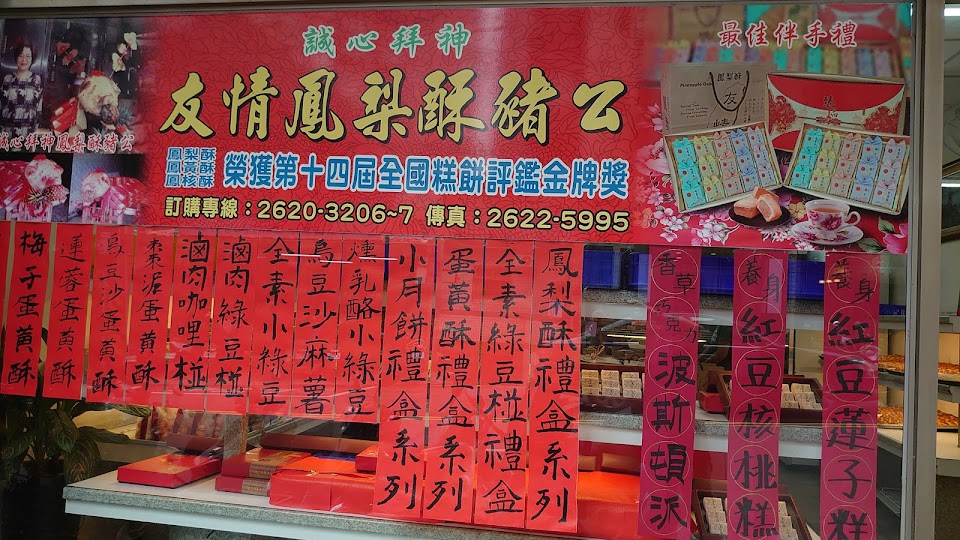 誠心拜神
最佳伴手禮
友情鳳梨酥豬公
誠心拜神鳳梨酥豬公
鳳梨酥
鳳黃酥
鳳核酥
榮獲第十四屆全國糕餅評鑑金牌獎
訂購專線：2620-3206~7 傳真：2622-5995
鳳梨酥
友
情
梅子蛋黃酥
蓮蓉蛋黃酥
烏豆沙蛋黃酥
棗泥蛋黃酥
滷肉咖哩椪
滷肉綠豆椪
全素小綠豆
烏豆沙麻薯
燻乳酪小綠豆
小月餅禮盒系列
蛋黃酥禮盒系列
全素綠豆椪禮盒
鳳梨酥禮盒系列
香草巧克力波斯頓派
養身紅豆核桃糕
養身紅豆蓮子糕